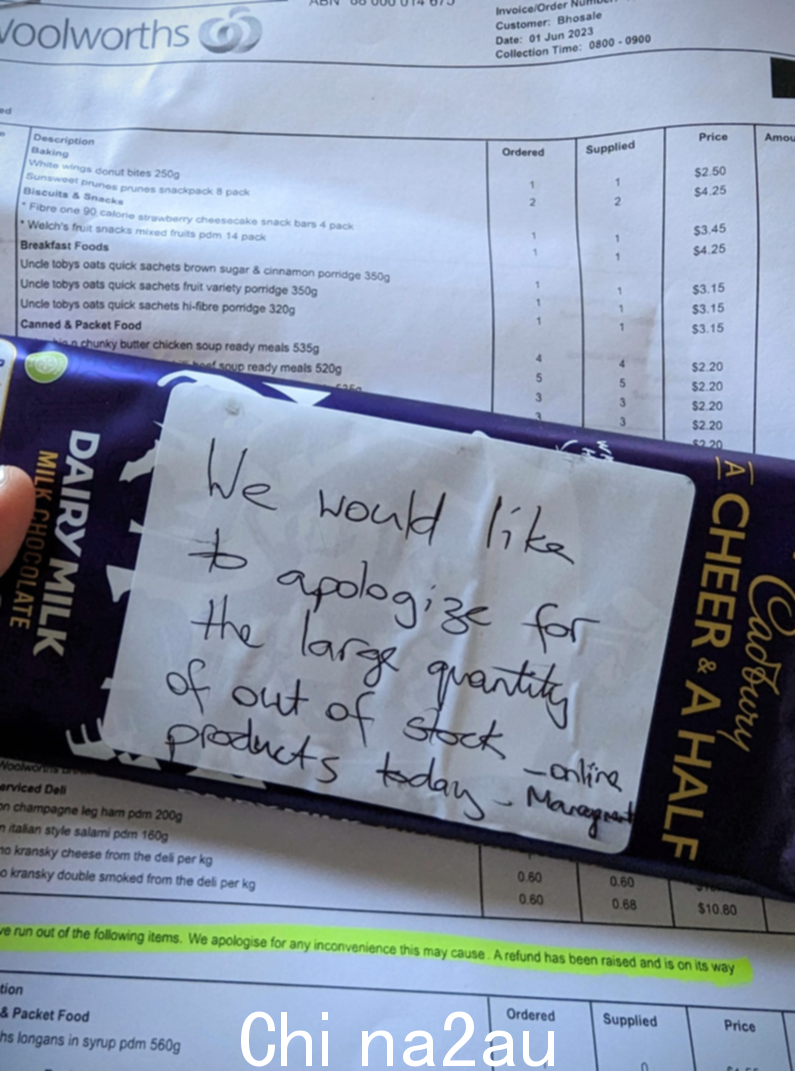 ABN 88 000 014 675
Woolworths
Invoice/Order Number
Customer: Bhosale
Date: 01 Jun 2023
Collection Time: 0800 - 0900
ed
Description Ordered Supplied Price Amou
Baking
White wings donut bites 250g 1 1 $2.50
Sunsweet prunes prunes snackpack 8 pack 2 2 $4.25
Biscuits & Snacks
* Fibre one 90 calorie strawberry cheesecake snack bars 4 pack 1 1 $3.45
* Welch's fruit snacks mixed fruits pdm 14 pack 1 1 $4.25
Breakfast Foods
Uncle tobys oats quick sachets brown sugar & cinnamon porridge 350g 1 1 $3.15
Uncle tobys oats quick sachets fruit variety porridge 350g 1 1 $3.15
Uncle tobys oats quick sachets hi-fibre porridge 320g 1 1 $3.15
Canned & Packet Food
n chunky butter chicken soup ready meals 535g 4 4 $2.20
beef soup ready meals 520g 5 5 $2.20
3 3 $2.20
3 3 $2.20
$2.20
DAIRY MILK
MILK CHOCOLATE
We would like
to apologize for
the large quantity
of out of stock
products today
- online
- Management
Cadbury
A CHEER & A HALF
Woolworths
erviced Deli
on champagne leg ham pdm 200g
n italian style salami pdm 160g
no kransky cheese from the deli per kg 0.60 0.60
o kransky double smoked from the deli per kg 0.60 0.68 $10.80
ve run out of the following items. We apologise for any inconvenience this may cause. A refund has been raised and is on its way
tion Ordered Supplied Price
& Packet Food
hs longans in syrup pdm 560g 0
Chi na2au